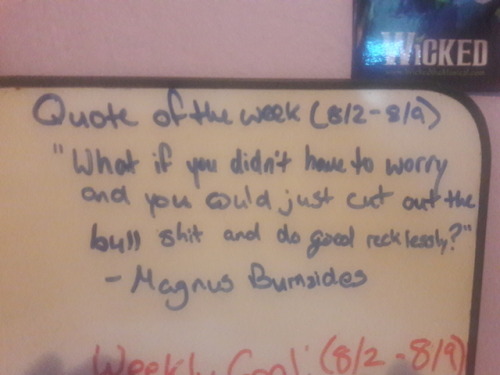 WICKED
Quote of the week (8/2-8/9)
"What if you didn't have to worry
and you could just cut out the
bull shit and do good recklessly?"
- Magnus Burnsides
Weekly Goal: (8/2-8/9)